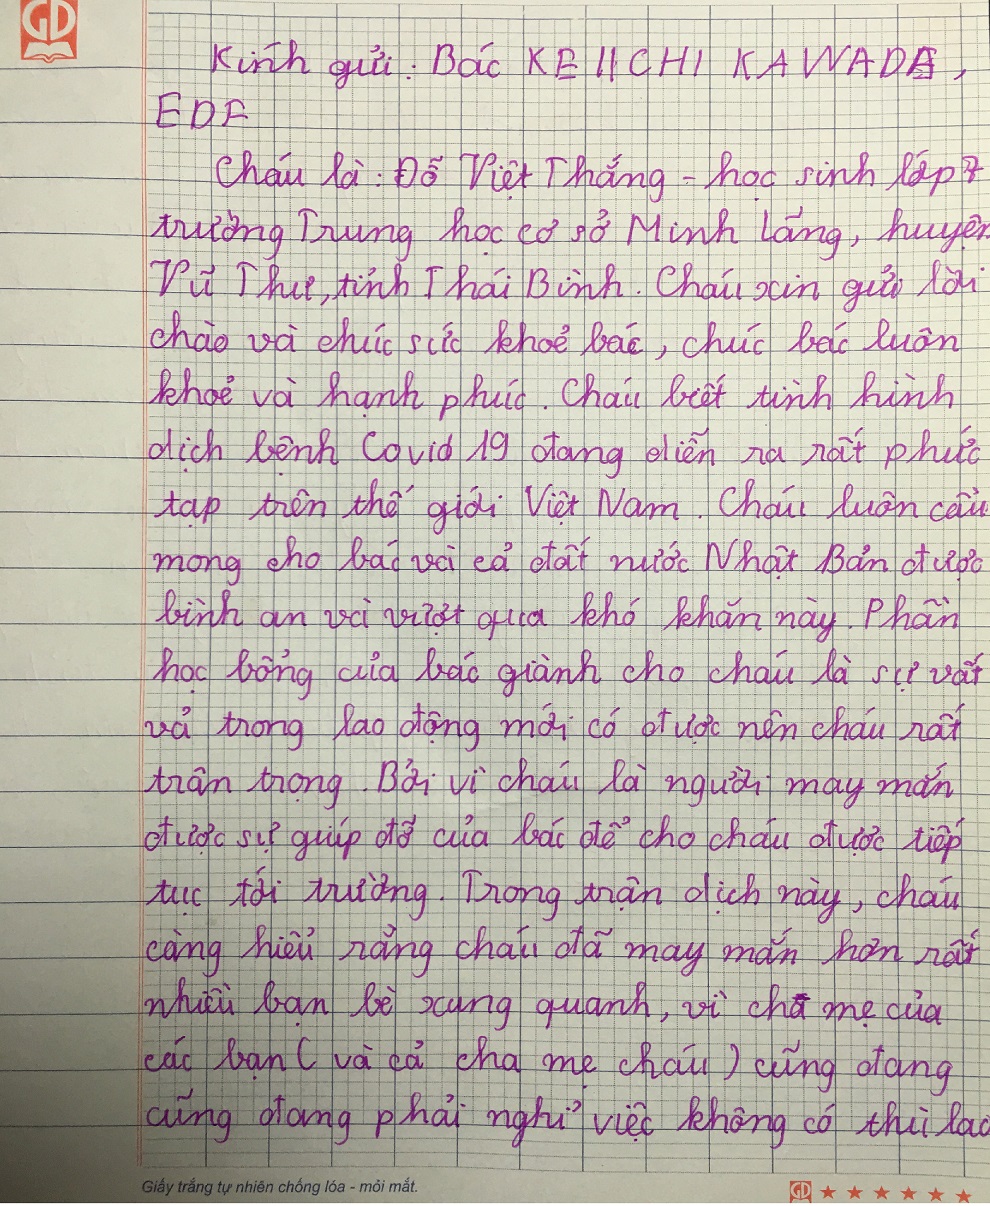 GD
Kính gửi: Bác KEIICHI KAWADA,
EDF
Cháu là: Đỗ Việt Thắng - học sinh lớp 7
trường Trung học cơ sở Minh Lãng, huyện
Vũ Thư, tỉnh Thái Bình. Cháu xin gửi lời
chào và chúc sức khoẻ bác, chúc bác luôn
khoẻ và hạnh phúc. Cháu biết tình hình
dịch bệnh Covid 19 đang diễn ra rất phức
tạp trên thế giới Việt Nam. Cháu luôn cầu
mong cho bác và cả đất nước Nhật Bản được
bình an và vượt qua khó khăn này. Phần
học bổng của bác giành cho cháu là sự vất
vả trong lao động mới có được nên cháu rất
trân trọng. Bởi vì cháu là người may mắn
được sự giúp đỡ của bác để cho cháu được tiếp
tục tới trường. Trong trận dịch này, cháu
càng hiểu rằng cháu đã may mắn hơn rất
nhiều bạn bè xung quanh, vì cha mẹ của
các bạn ( và cả cha mẹ cháu ) cũng đang
cũng đang phải nghỉ việc không có thù lao
Giấy trắng tự nhiên chống lóa - mỏi mắt.
GD ★ ★ ★ ★ ★ ★